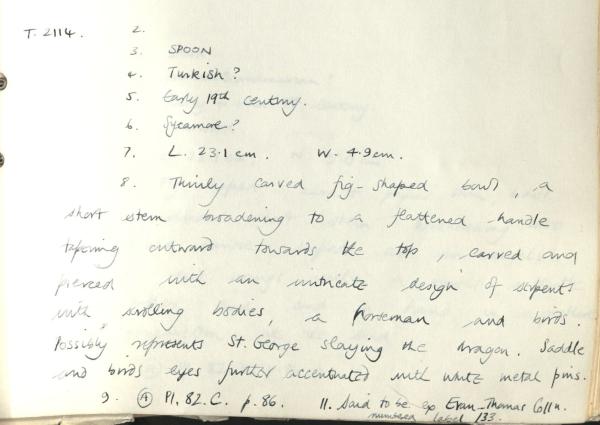 T. 2114. 2.
3. SPOON
4. Turkish?
5. Early 19th century.
6. Sycamore?
7. L. 23.1 cm. W. 4.9 cm.
8. Thinly carved fig-shaped bowl, a
short stem broadening to a flattened handle
tapering outward towards the top, carved and
pierced with an intricate design of serpents
with scrolling bodies, a horseman and birds.
Possibly represents St. George slaying the dragon. Saddle
and birds eyes further accentuated with white metal pins.
9. A Pl. 82. C. p. 86. 11. Said to be ex Evan-Thomas Colln.
numbered label 133.